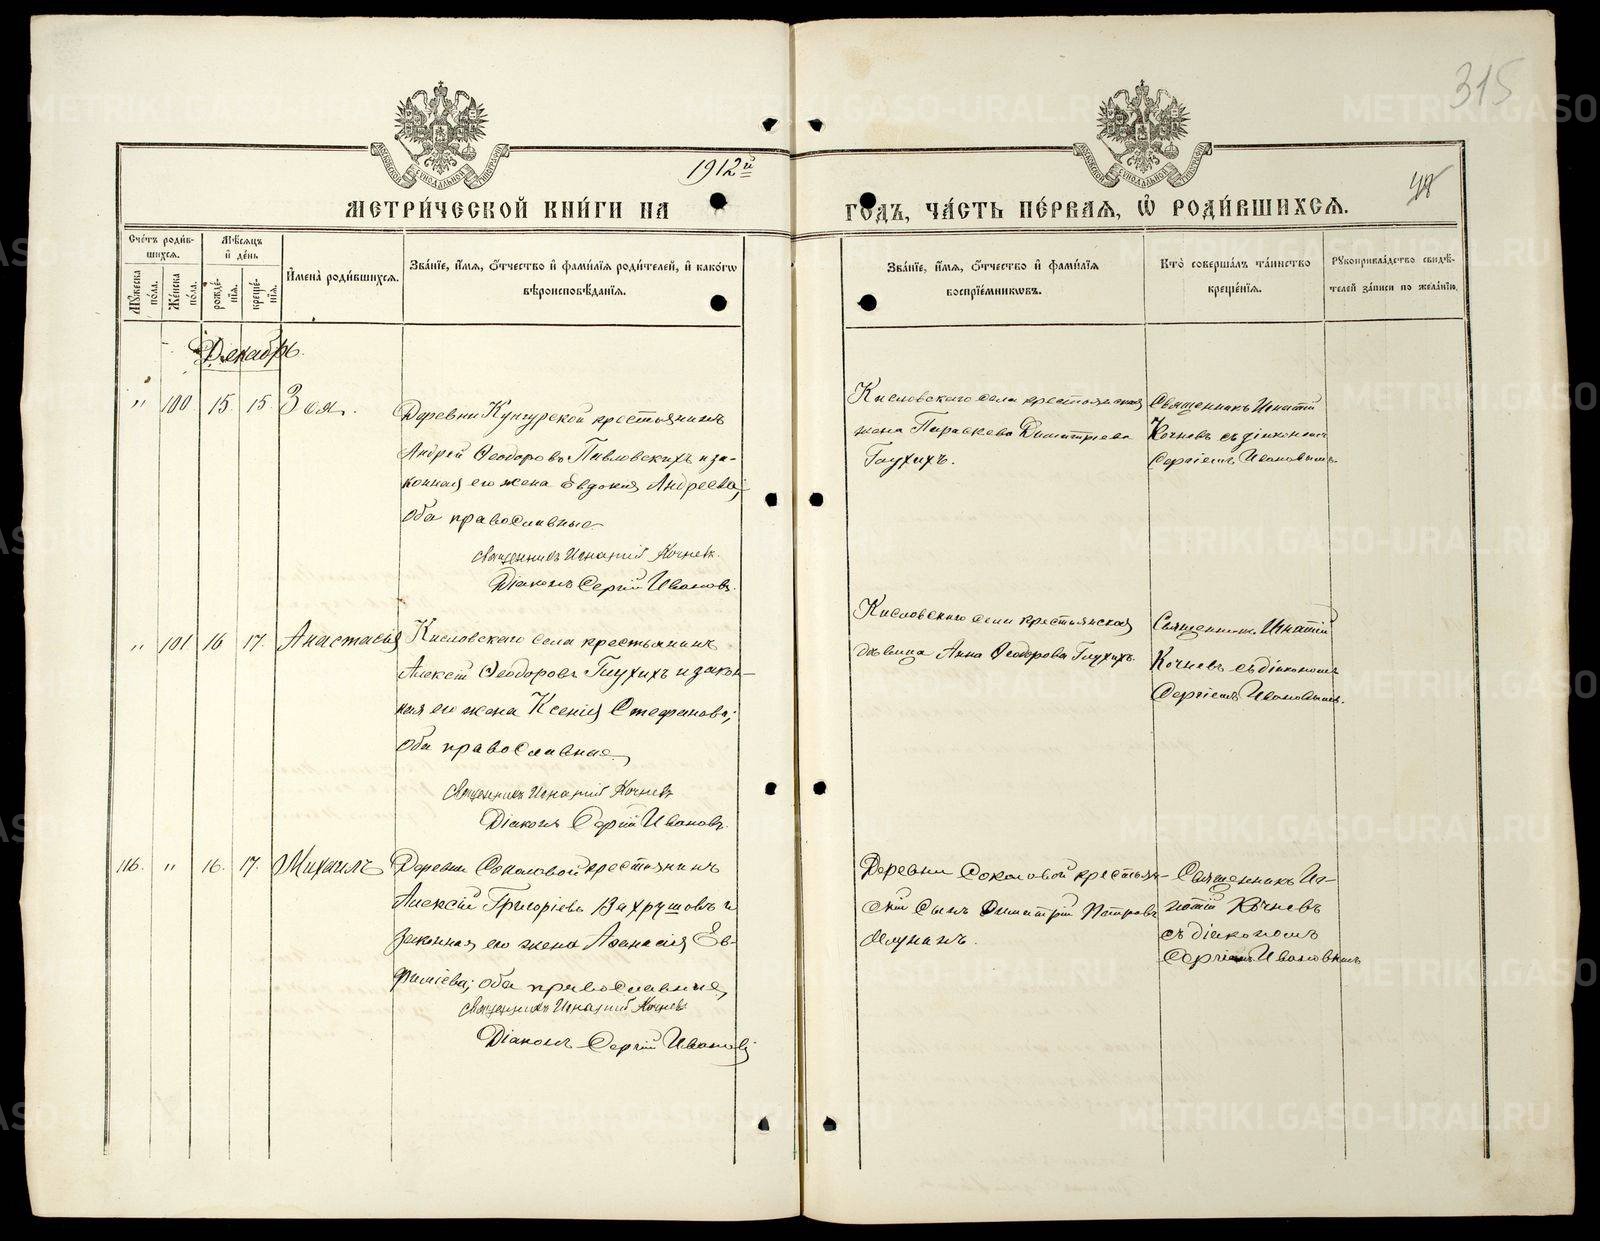 315
1912й
48
МЕТРИ́ЧЕСКОЙ КНИ́ГИ НА ГО́ДЪ, ЧА́СТЬ ПЕ́РВАЯ, Ѡ РОДИ́ВШИХСЯ.
Сче́тъ роди́вшихся.
Му́жеска по́ла.
Же́нска по́ла.
Мѣ́сяцъ и де́нь
рожде́нія.
креще́нія.
Имена̀ роди́вшихся.
Зва́ніе, и́мя, о́тчество и фами́лія роди́телей, и како́гѡ вѣроисповѣ́данія.
Зва́ніе, и́мя, о́тчество и фами́лія воспріе́мникѡвъ.
Кто̀ соверша́лъ та́инство креще́нія.
Рукоприкла́дство свидѣ́телей за́писи по жела́нію.
Декабрь.
" 100 15. 15. Зоя.
Деревни Кунгурской крестьянинъ
Андрей Ѳеодоровъ Павловскихъ и за-
конная его жена Евдокія Андреева;
оба православные
Священникъ Игнатій Кочневъ.
Діаконъ Сергій Ивановъ.
Кисловскаго села крестьянская
жена Параскева Димитріева
Глухихъ.
Священникъ Игнатій
Кочневъ съ діакономъ
Сергіемъ Ивановымъ.
" 101 16 17. Анастасія
Кисловскаго села крестьянинъ
Алексій Ѳеодоровъ Глухихъ и закон-
ная его жена Ксенія Стефанова;
оба православные
Священникъ Игнатій Кочневъ
Діаконъ Сергій Ивановъ.
Кисловскаго села крестьянская
дѣвица Анна Ѳеодорова Глухихъ.
Священникъ Игнатій
Кочневъ съ діакономъ
Сергіемъ Ивановымъ.
116. " 16. 17. Михаилъ
Деревни Соколовой крестьянинъ
Алексій Григоріевъ Вахрушовъ и
законная его жена Аѳанасія Ев-
фиміева; оба православные
Священникъ Игнатій Кочневъ
Діаконъ Сергій Ивановъ
Деревни Соколовой крестьян-
скій сынъ Димитрій Петровъ
Священникъ Иг-
натій Кочневъ
съ діакономъ
Сергіемъ Ивановымъ
METRIKI.GASO-URAL.RU